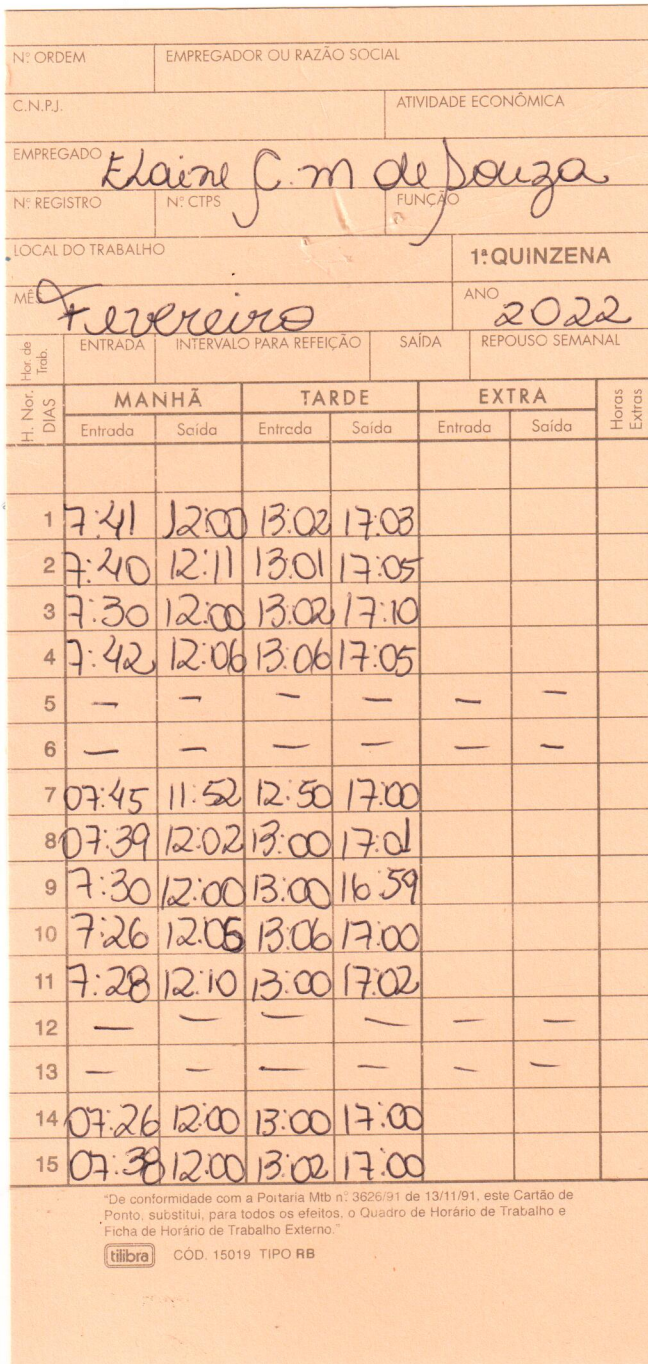 Nº ORDEM EMPREGADOR OU RAZÃO SOCIAL
C.N.P.J. ATIVIDADE ECONÔMICA
EMPREGADO Elaine C. M de Souza
Nº REGISTRO Nº CTPS FUNÇÃO
LOCAL DO TRABALHO 1ª QUINZENA
MÊS Fevereiro ANO 2022
Hor. de Trab. ENTRADA INTERVALO PARA REFEIÇÃO SAÍDA REPOUSO SEMANAL
H. Nor. DIAS MANHÃ TARDE EXTRA Horas Extras
Entrada Saída Entrada Saída Entrada Saída
1 7:41 12:00 13:02 17:03
2 7:40 12:11 13:01 17:05
3 7:30 12:00 13:02 17:10
4 7:42 12:06 13:06 17:05
5 — — — — — —
6 — — — — — —
7 07:45 11:52 12:50 17:00
8 07:39 12:02 13:00 17:01
9 7:30 12:00 13:00 16:59
10 7:26 12:06 13:06 17:00
11 7:28 12:10 13:00 17:02
12 — — — — — —
13 — — — — — —
14 07:26 12:00 13:00 17:00
15 07:38 12:00 13:02 17:00
"De conformidade com a Portaria Mtb n.º 3626/91 de 13/11/91, este Cartão de
Ponto, substitui, para todos os efeitos, o Quadro de Horário de Trabalho e
Ficha de Horário de Trabalho Externo."
tilibra CÓD. 15019 TIPO RB